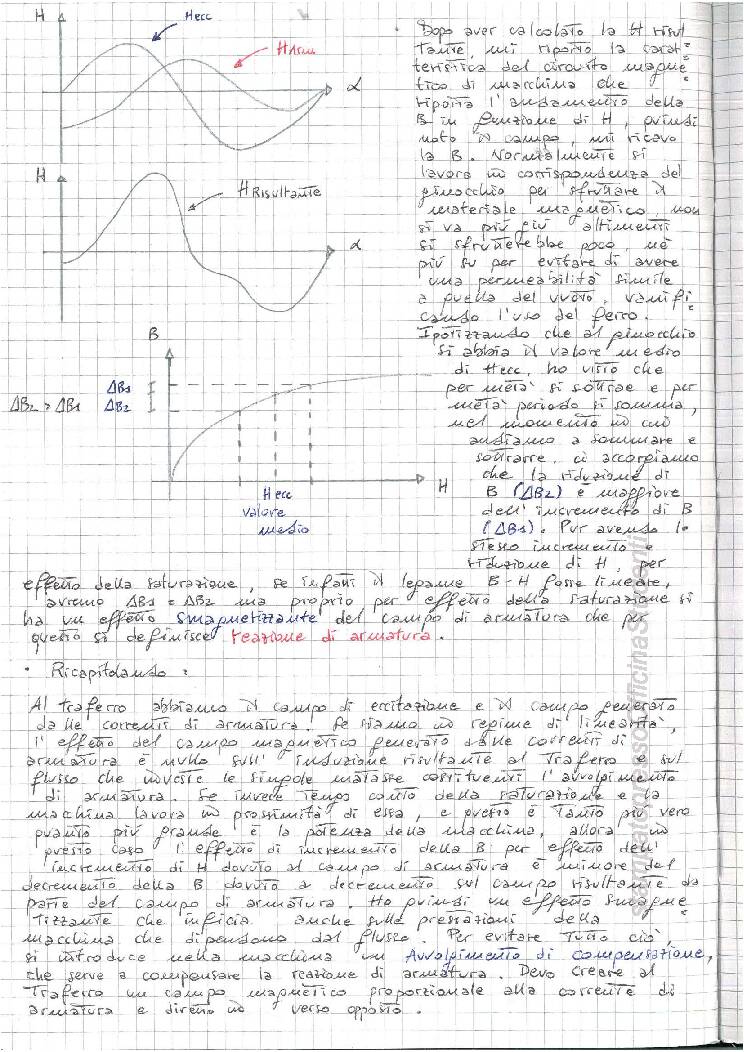 H
Hecc
HArm
α
H
HRisultante
α
B
ΔB1
ΔB2 > ΔB1 ΔB2
H
Hecc
valore
medio
· Dopo aver calcolato la H risul
tante, mi riporto la carat=
teristica del circuito magne=
tico di macchina che
riporta l'andamento della
B in funzione di H, quindi
noto il campo, mi ricavo
la B. Normalmente si
lavora in corrispondenza del
ginocchio per sfruttare il
materiale magnetico, non
si va più giù altimenti
si sfrutterebbe poco, nè
più su per evitare di avere
una permeabilità simile
a quella del vuoto, vanifi=
cando l'uso del ferro.
Ipotizzando che al ginocchio
si abbia il valore medio
di Hecc, ho visto che
per metà si sottrae e per
metà periodo si somma,
nel momento in cui
andiamo a sommare e
sottrarre, ci accorgiamo
che la riduzione di
B (ΔB2) è maggiore
dell'incremento di B
(ΔB1). Pur avendo lo
stesso incremento e
riduzione di H, per
effetto della saturazione, se infatti il legame B-H fosse lineare,
avremo ΔB1 = ΔB2 ma proprio per effetto della saturazione si
ha un effetto smagnetizzante del campo di armatura che per
questo si definisce reazione di armatura.
· Ricapitolando:
Al traferro abbiamo il campo di eccitazione e il campo generato
dalle correnti di armatura! Se siamo in regime di linearità,
l'effetto del campo magnetico generato dalle correnti di
armatura è nullo sull'induzione risultante al traferro e sul
flusso che investe le singole matasse costituenti l'avvolgimento
di armatura. Se invece tengo conto della saturazione e la
macchina lavora in prossimità di essa, e questo è tanto più vero
quanto più grande è la potenza della macchina, allora in
questo caso l'effetto di incremento della B per effetto dell'
incremento di H dovuto al campo di armatura è minore del
decremento della B dovuto a decremento sul campo risultante da
parte del campo di armatura. Ho quindi un effetto smagne=
tizzante che inficia anche sulle prestazioni della
macchina che dipendono dal flusso. Per evitare tutto ciò,
si introduce nella macchina un Avvolgimento di compensazione,
che serve a compensare la reazione di armatura. Devo creare al
traferro un campo magnetico proporzionale alla corrente di
armatura e diretto in verso opposto.